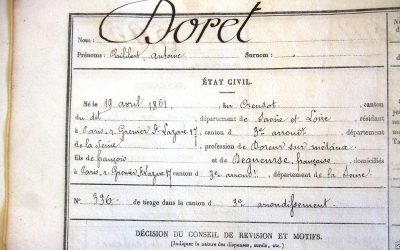 Nom: Doret
Prénoms: Philibert, Antoine Surnom:
ÉTAT CIVIL.
Né le 19 avril 1861, au Creusot, canton
du dit, département de Saône et Loire, résidant
à Paris, r. Grenier St Lazare 17, canton d 3e arrondt., département
de la Seine, profession de Doreur sur métaux
fils de françois et de Dequeurse, françoise, domiciliés
à Paris, r. Grenier St Lazare 17, canton d 3e arrondt., département de la Seine
N° 336 de tirage dans le canton d 3e arrondissement.
DÉCISION DU CONSEIL DE REVISION ET MOTIFS.
(Indiquer la nature des dispenses, sursis, etc.)